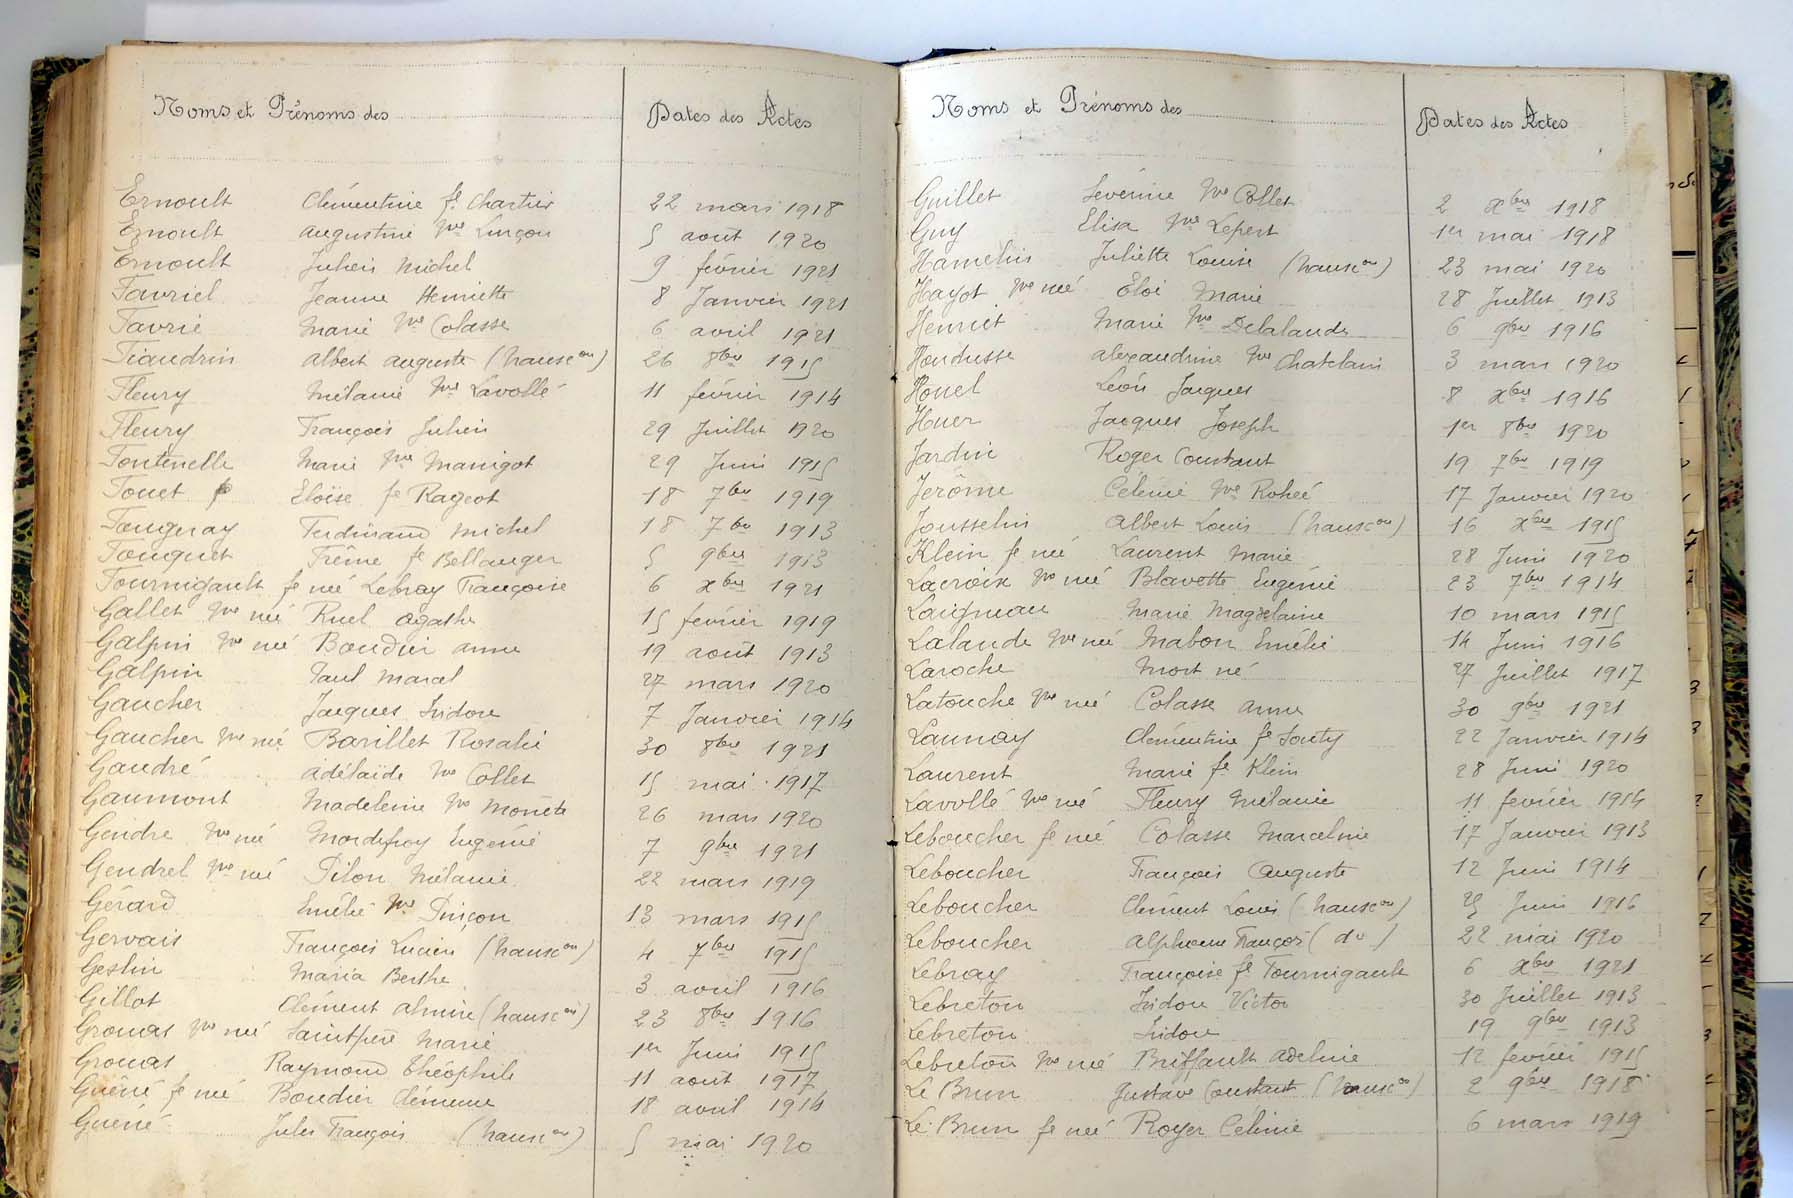 Noms et Prénoms des
Dates des Actes
Ernoult Clémentine fe Chartier 22 mars 1918
Ernoult Augustine Vve Luçon 5 août 1920
Ernoult Julien Michel 9 février 1921
Favriel Jeanne Henriette 8 Janvier 1921
Favrie Marie Vve Colasse 6 avril 1921
Fiaudrin Albert Auguste (transcon) 26 8bre 1915
Fleury Mélanie Vve Lavollé 11 février 1914
Fleury François Julien 29 Juillet 1920
Fontenelle Marie Vve Manigot 29 Juin 1915
Fouet Eloïse fe Rageot 18 7bre 1919
Fougeray Ferdinand Michel 18 7bre 1913
Fouquet fe Bellanger 5 9bre 1913
Fournigault fe née Lebray Françoise 6 xbre 1921
Gallet Vve née Ruel Agathe 15 février 1919
Galpin Vve née Boudier Anne 19 août 1913
Galpin Paul Marcel 27 mars 1920
Gaucher Jacques Isidore 7 Janvier 1914
Gaucher Vve née Barillet Rosalie 30 8bre 1921
Gaudré Adélaïde Vve Collet 15 mai 1917
Gaumont Madeleine Vve Monète 26 mars 1920
Gendre Vve née Mordefroy Eugénie 7 9bre 1921
Gendrel Vve née Pilon Mélanie 22 mars 1919
Gérard Emélie Vve Pinçon 13 mars 1915
Gervais François Lucien (transcon) 4 7bre 1915
Geslin Maria Berthe 3 avril 1916
Gillot Clément Almire (transcon) 23 8bre 1916
Grouas Vve née Saintpère Marie 1er Juin 1915
Grouas Raymond Théophile 11 août 1917
Guéné fe née Boudier Clémence 18 avril 1914
Guéné Jules François (transcon) 5 mai 1920
Noms et Prénoms des
Dates des Actes
Guillet Séverine Vve Collet 2 xbre 1918
Guy Elisa Vve Lepert 1er mai 1918
Hamelin Juliette Louise (transcon) 23 mai 1920
Hayot Vve née Eloi Marie 28 Juillet 1913
Henriet Marie Vve Delalande 6 9bre 1916
Houdusse Alexandrine Vve Chatelain 3 mars 1920
Houel Léon Jacques 8 xbre 1916
Huer Jacques Joseph 1er 8bre 1920
Jardin Roger Constant 19 7bre 1919
Jerôme Célénie Vve Roheé 17 Janvier 1920
Jousselin Albert Louis (transcon) 16 xbre 1915
Klein fe née Laurent Marie 28 Juin 1920
Lacroix Vve née Blavette Eugénie 23 7bre 1914
Laigneau Marie Magdelaine 10 mars 1915
Lalande Vve née Mabon Emélie 14 Juin 1916
Laroche Mort né 27 Juillet 1917
Latouche Vve née Colasse Anne 30 9bre 1921
Launay Clémentine fe Fouty 22 Janvier 1914
Laurent Marie fe Klein 28 Juin 1920
Lavollé Vve née Fleury Mélanie 11 février 1914
Leboucher fe née Colasse Marceline 17 Janvier 1913
Leboucher François Auguste 12 Juin 1914
Leboucher Clément Louis (transcon) 25 Juin 1916
Leboucher Alphonse François (do) 22 mai 1920
Lebray Françoise fe Fournigault 6 xbre 1921
Lebreton Isidore Victor 30 Juillet 1913
Lebreton Isidore 19 9bre 1913
Lebreton Vve née Briffault Adeline 12 février 1915
Le Brun Gustave Constant (transcon) 2 9bre 1918
Le Brun fe née Royer Célinie 6 mars 1919